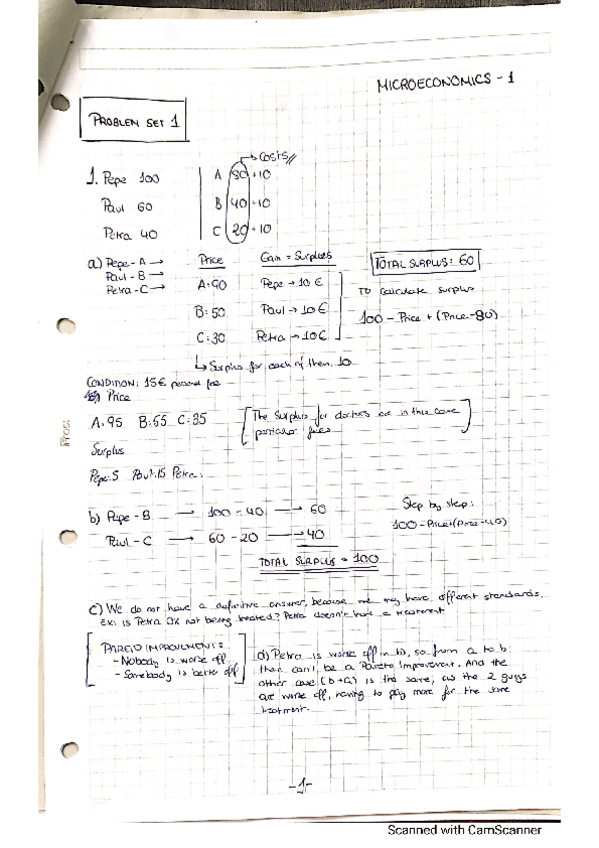 MICROECONOMICS - 1
PROBLEM SET 1
→ Costs
1. Pepe 100 A 80 +10
Paul 60 B 40 +10
Petra 40 C 20 +10
a) Pepe - A → Price Gain = Surplus TOTAL SURPLUS: 60
Paul - B →
Petra - C → A: 90 Pepe → 10 € To calculate surplus
B: 50 Paul → 10 € 100 - Price + (Price - 80)
C: 30 Petra → 10 €
↳ Surplus for each of them, 10
CONDITION: 15€ personal fee
Price
A: 95 B: 55 C: 35 [The surplus for doctors are in this case
particular fees]
Surplus
Pepe: 5 Paul: 15 Petra:
b) Pepe - B → 100 - 40 → 60 Step by step:
Paul - C → 60 - 20 → 40 100 - Price + (Price - 40)
TOTAL SURPLUS = 100
c) We do not have a definitive answer, because we may have different standards.
Ex: is Petra OK not being treated? Petra doesn't have a treatment
PARETO IMPROVEMENT:
- Nobody is worse off
- Somebody is better off
d) Petra is worse off in b), so from a to b
that can't be a Pareto Improvement. And the
other case (b→a) is the same, as the 2 guys
are worse off, having to pay more for the same
treatment.
-1-
Scanned with CamScanner